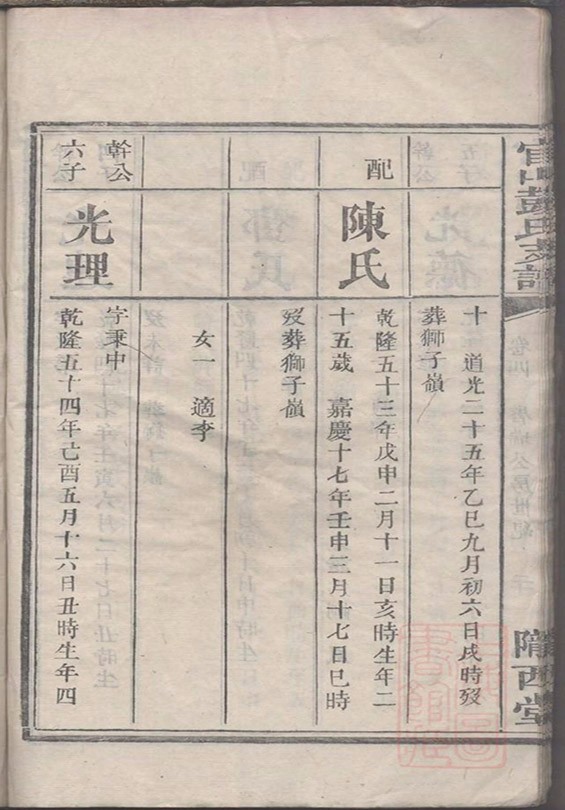 官山彭氏支譜
卷四
隴西堂
十 道光二十五年乙巳九月初六日戌時歿
葬獅子嶺
配
陳氏
乾隆五十三年戊申二月十一日亥時生年二
十五歲 嘉慶十七年壬申三月十七日巳時
歿葬獅子嶺
女一 適李
幹公
六子
光理
字秉中
乾隆五十四年己酉五月十六日丑時生年四